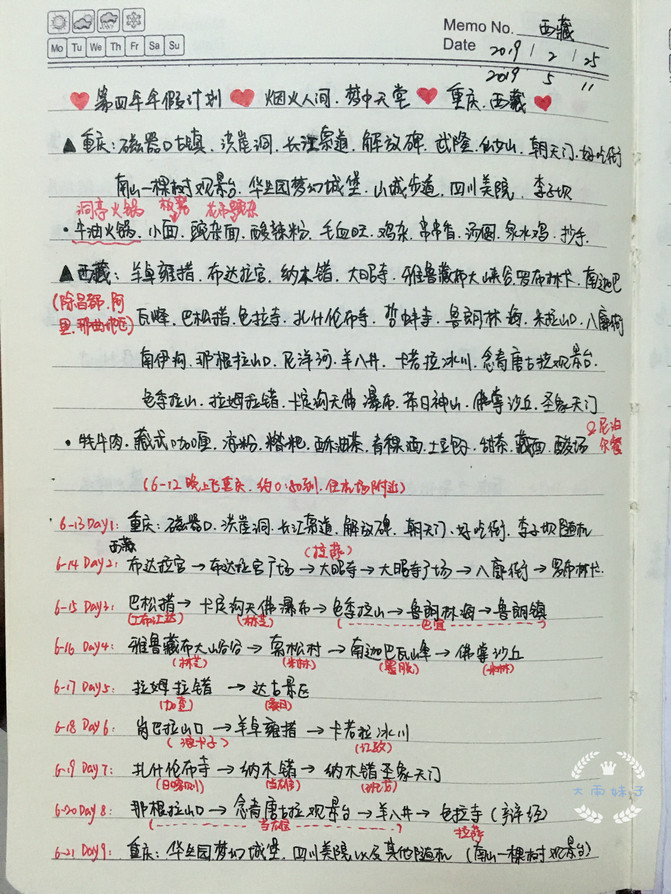 Memo No. 西藏
Mo Tu We Th Fr Sa Su
Date 2019 / 2 / 25
2019 5 11
第四年年假计划 烟火人间.梦中天堂 重庆.西藏
▲重庆:磁器口古镇.洪崖洞.长江索道.解放碑.武隆.仙女山.朝天门.好吃街
南山一棵树观景台.华生园梦幻城堡.山城步道.四川美院.李子坝
洞亭火锅 板凳 花市豌杂
·牛油火锅.小面.豌杂面.酸辣粉.毛血旺.鸡杂.串串香.汤圆.泉水鸡.抄手.
▲西藏:羊卓雍措.布达拉宫.纳木错.大昭寺.雅鲁藏布大峡谷.罗布林卡.南迦巴
(除昌都.阿里.那曲地区)
瓦峰.巴松措.色拉寺.扎什伦布寺.哲蚌寺.鲁朗林海.米拉山口.八廓街
南伊沟.那根拉山口.尼洋河.羊八井.卡若拉冰川.念青唐古拉观景台.
色季拉山.拉姆拉错.卡定沟天佛瀑布.苯日神山.佛掌沙丘.圣象天门
·牦牛肉.藏式咖喱.凉粉.糌粑.酥油茶.青稞酒.土豆包子.甜茶.藏面.酸奶
尼泊尔餐
(6-12 晚上飞重庆.约0:80到.住机场附近)
6-13 Day1: 重庆:磁器口.洪崖洞.长江索道.解放碑.朝天门.好吃街.李子坝随机
西藏 (拉萨)
6-14 Day2: 布达拉宫→布达拉宫广场→大昭寺→大昭寺广场→八廓街→罗布林卡.
6-15 Day3: 巴松措→卡定沟天佛瀑布→色季拉山→鲁朗林海→鲁朗镇
(工布江达) (林芝) (巴宜)
6-16 Day4: 雅鲁藏布大峡谷→索松村→南迦巴瓦峰→佛掌沙丘
(林芝) (米林) (墨脱) (米林)
6-17 Day5: 拉姆拉错→达古景区
(加查) (桑日)
6-18 Day6: 岗巴拉山口→羊卓雍措→卡若拉冰川
(浪卡子) (江孜)
6-19 Day7: 扎什伦布寺→纳木错→纳木错圣象天门
(日喀则) (当雄) (班戈)
6-20 Day8: 那根拉山口→念青唐古拉观景台→羊八井→色拉寺(辩经)
(当雄) 拉萨
6-21 Day9: 重庆:华生园梦幻城堡.四川美院以及其他随机(南山一棵树观景台)
大雨妹子